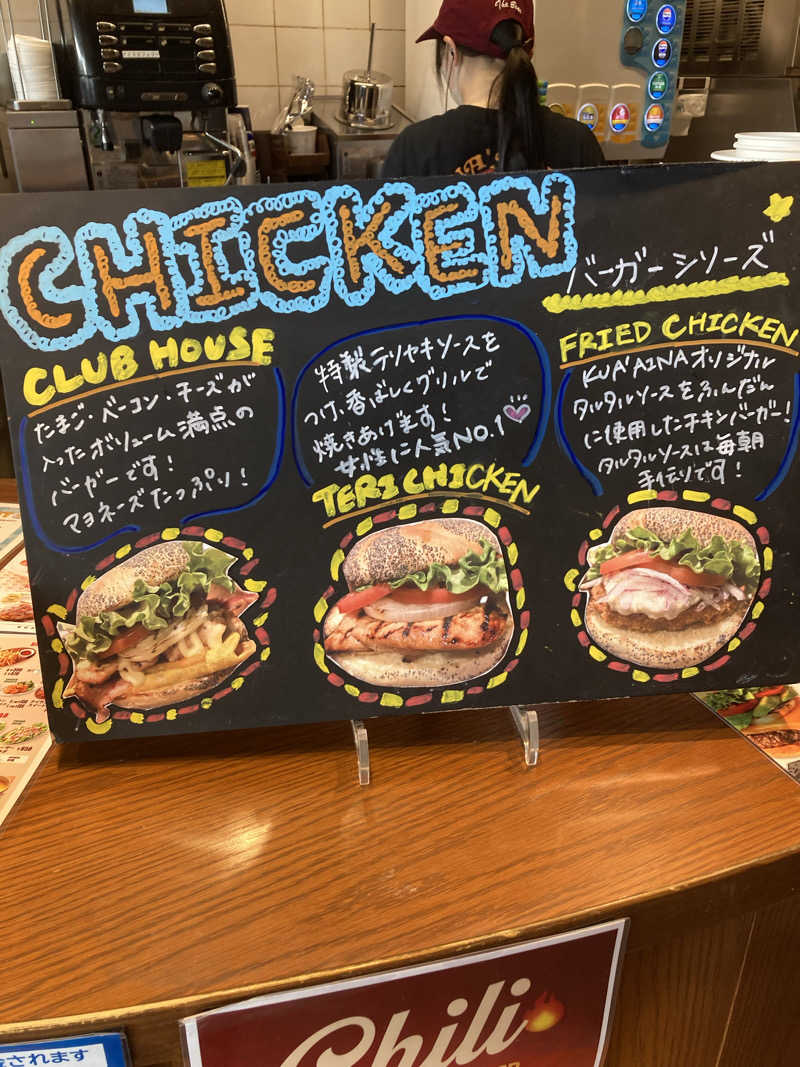 CHICKEN
バーガーシリーズ
CLUB HOUSE
たまご・ベーコン・チーズが
入ったボリューム満点の
バーガーです!
マヨネーズたっぷり!
特製テリヤキソースを
つけ、香ばしくグリルで
焼きあげます!
女性に人気NO.1
TERI CHICKEN
FRIED CHICKEN
KUA'AINAオリジナル
タルタルソースをふんだん
に使用したチキンバーガー!
タルタルソースは毎朝
手作りです!
Chili
されます